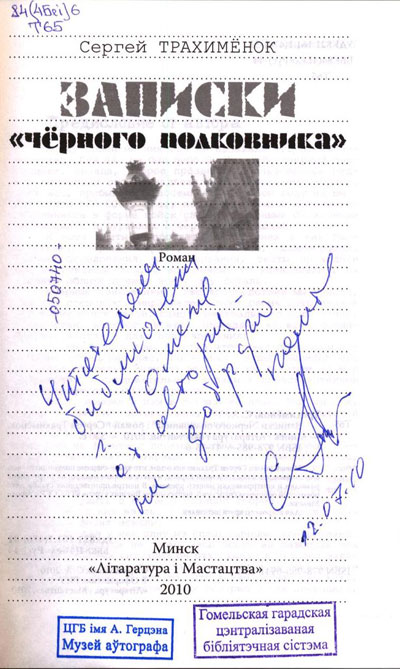 84(4Беі)6
Т65
Сергей ТРАХИМЁНОК
ЗАПИСКИ
«чёрного полковника»
Роман
-050740-
Читателям
библиотеки
г. Гомеля
от автора
на добрую
память
12.07.10
Минск
«Літаратура і Мастацтва»
2010
ЦГБ імя А. Герцэна
Музей аўтографа
Гомельская гарадская
цэнтралізаваная
бібліятэчная сістэма